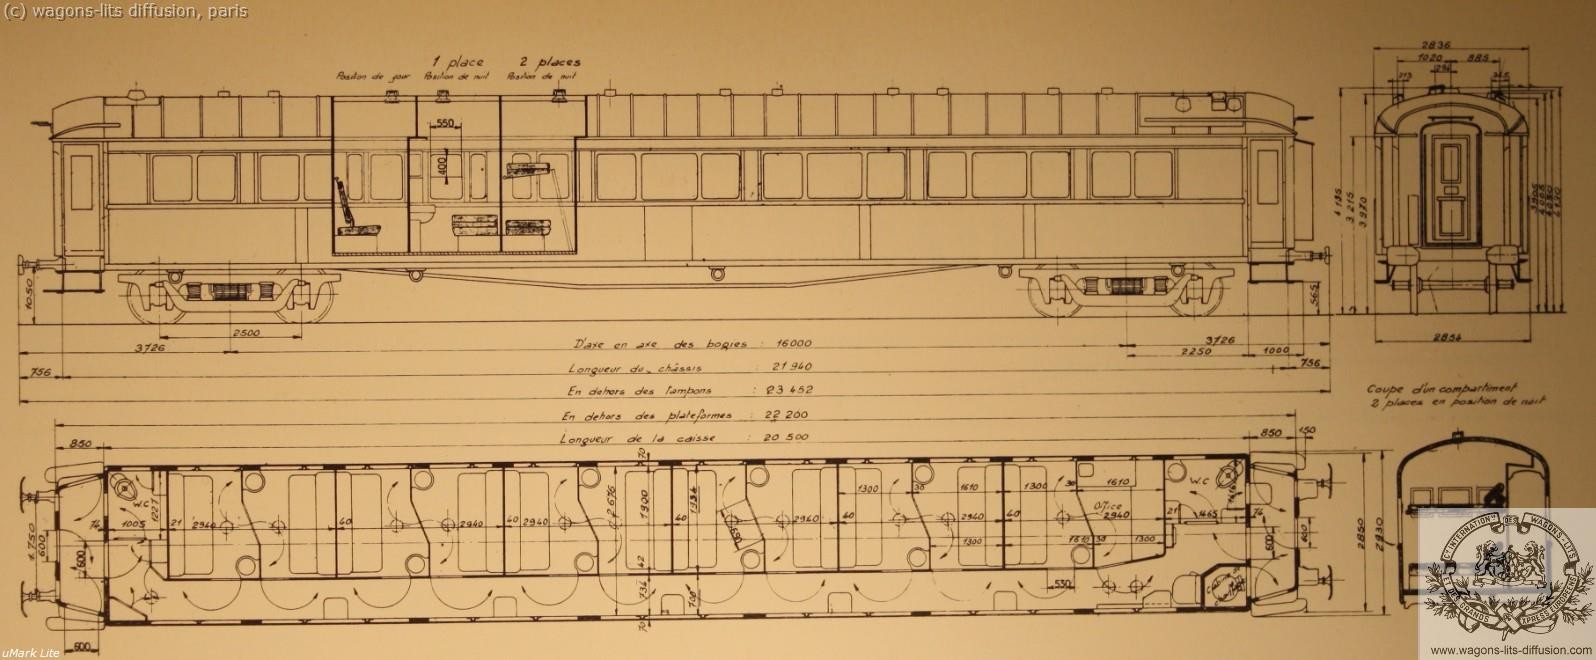 (c) wagons-lits diffusion, paris
1 place
2 places
Position de jour
Position de nuit
Position de nuit
550
400
2836
1020
885
294
4135
3.215
3.970
1050
565
2854
2500
3726
D'axe en axe des bogies : 16000
3726
2250
1000
756
Longueur du châssis : 21 940
756
En dehors des tampons : 23 452
En dehors des plateformes : 22 200
Longueur de la caisse : 20 500
Coupe d'un compartiment
2 places en position de nuit
850
850
150
70
W.C
1227
74
1005
21
2940
40
2940
40
2940
2.676
1900
1934
40
690
2940
40
1300
30
1610
2940
1300
1300
40
30
1610
Office
2940
1610
30
1300
W.C
21
1465
74
1.750
600
600
600
600
42
734
700
70
530
2850
2930
600
Cie INTERNATIONle DES WAGONS-LITS
ET DES GRANDS EXPRESS EUROPÉENS
www.wagons-lits-diffusion.com
uMark Lite